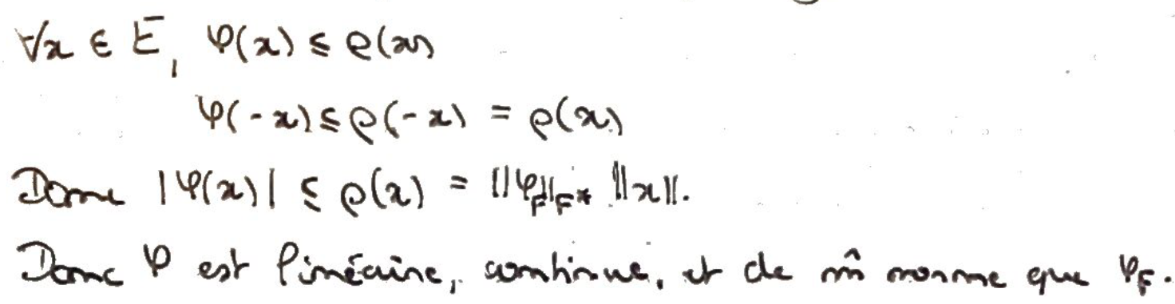 ∀x ∈ E, φ(x) ≤ ρ(x)
φ(-x) ≤ ρ(-x) = ρ(x)
Donc |φ(x)| ≤ ρ(x) = ||φ_F||_{F*} ||x||.
Donc φ est linéaire, continue, et de m̂ norme que φ_F.